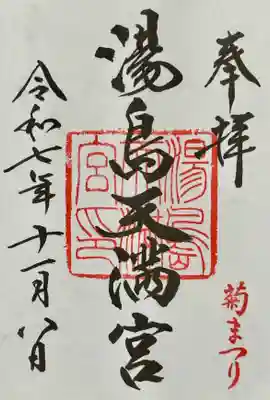 奉拝
菊まつり
湯島天満宮
令和七年十一月八日